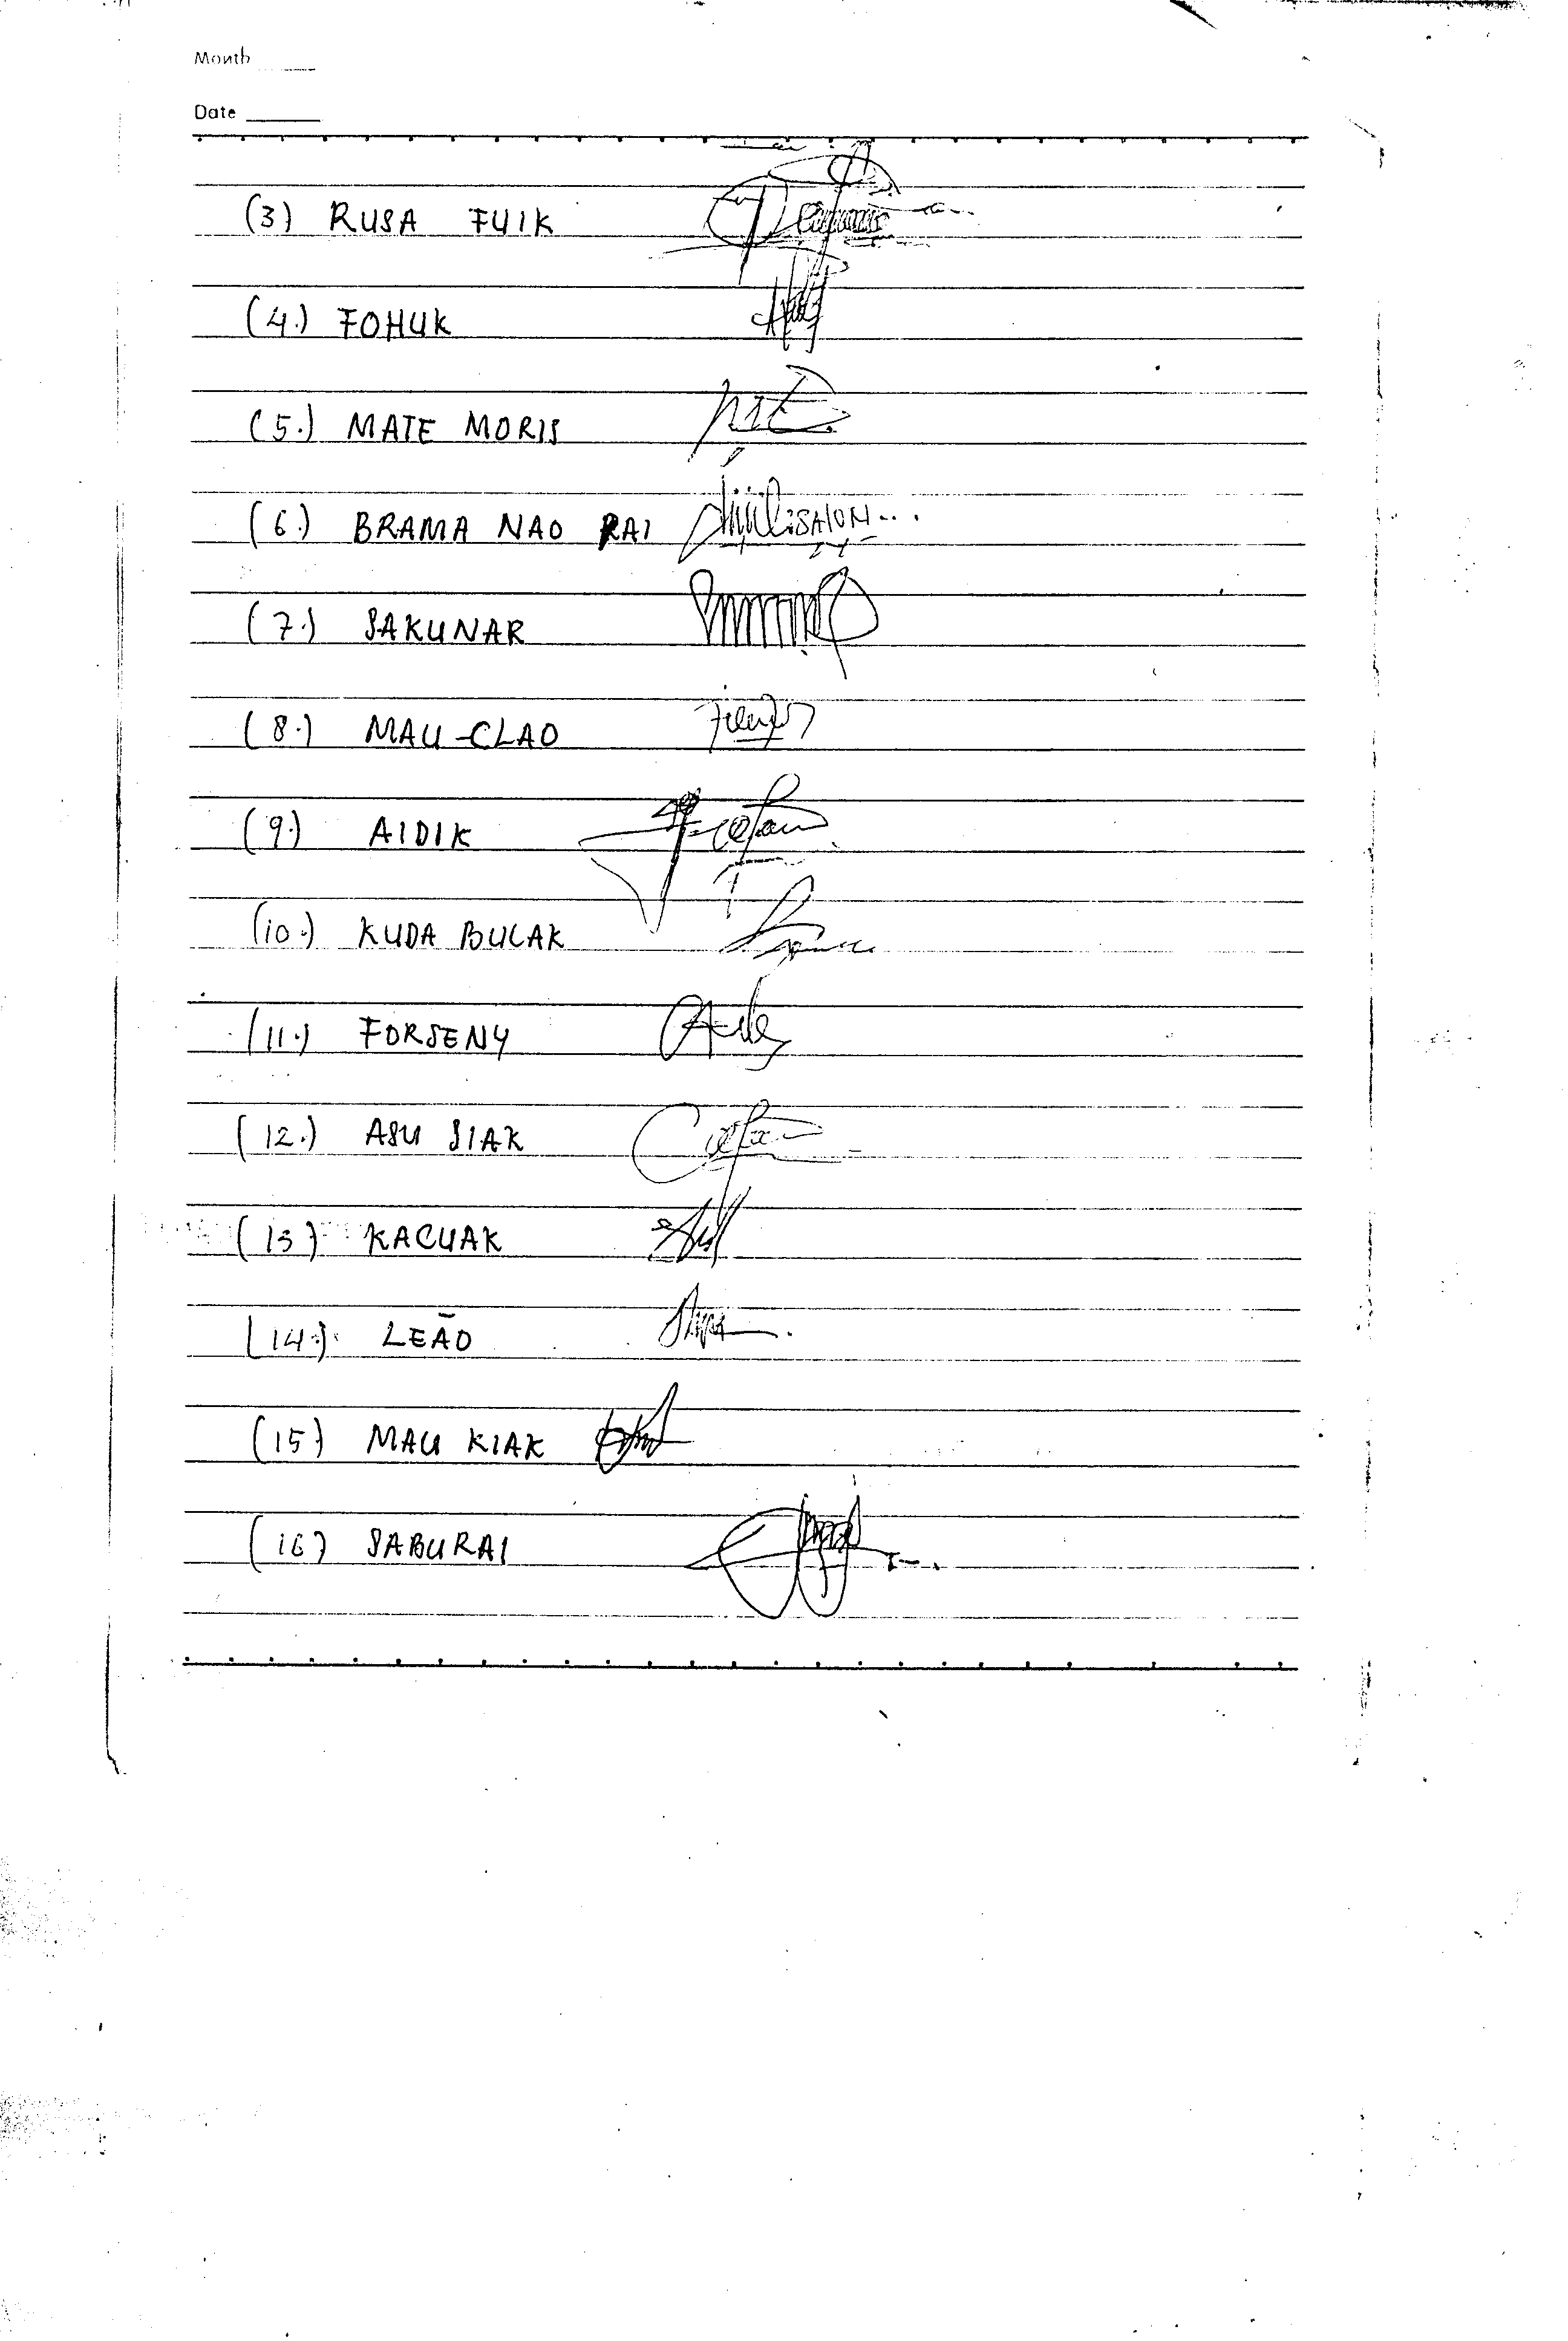 Month
Date
(3) RUSA FUIK
(4.) FOHUK
(5.) MATE MORIS
(6.) BRAMA NAO RAI
(7.) SAKUNAR
(8.) MAU-CLAO
(9.) AIDIK
(10.) KUDA BULAK
(11.) FORSENY
(12.) ASU SIAK
(13) KACUAK
(14.) LEÃO
(15) MAU KIAK
(16) SABURAI